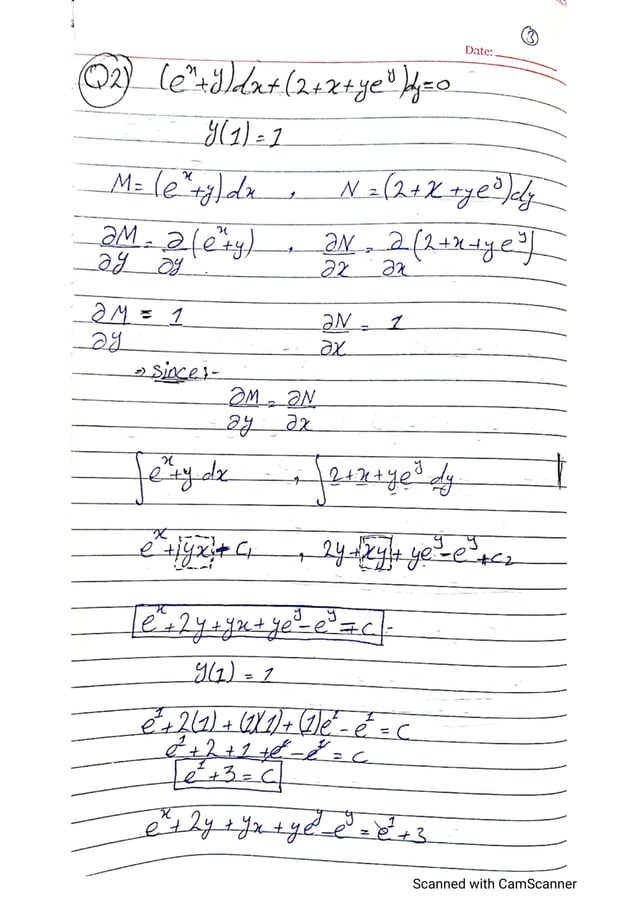 ③
Date:
Q2) (eˣ+y)dx+(2+x+yeʸ)dy=0
y(1)=1
M=(eˣ+y)dx , N=(2+x+yeʸ)dy
∂M/∂y = ∂/∂y (eˣ+y) , ∂N/∂x = ∂/∂x (2+x+yeʸ)
∂M/∂y = 1 ∂N/∂x = 1
⇒ since:-
∂M/∂y = ∂N/∂x
∫eˣ+y dx , ∫2+x+yeʸ dy
eˣ+yx+C₁ , 2y+xy+yeʸ-eʸ+C₂
eˣ+2y+yx+yeʸ-eʸ=C
y(1)=1
e¹+2(1)+(1)(1)+(1)e¹-e¹=C
e¹+2+1+e¹-e¹=C
e¹+3=C
eˣ+2y+yx+yeʸ-eʸ=e¹+3
Scanned with CamScanner